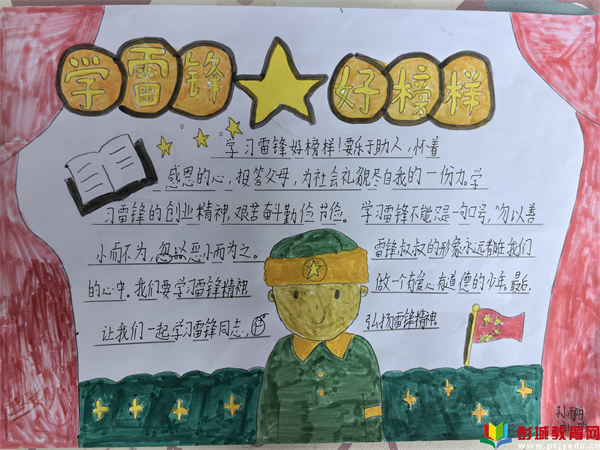 学雷锋 好榜样
学习雷锋好榜样!要乐于助人,怀着
感恩的心,报答父母,为社会礼貌尽自我的一份力。学
习雷锋的创业精神,艰苦奋斗勤俭节俭。学习雷锋不能只是一句口号,“勿以善
小而不为,勿以恶小而为之。 雷锋叔叔的形象永远都在我们
的心中,我们要学习雷锋精神 做一个有爱心有道德的少年。最后,
让我们一起学习雷锋同志, 弘扬雷锋精神。
彭城教育网
www.pcjyedu.cn